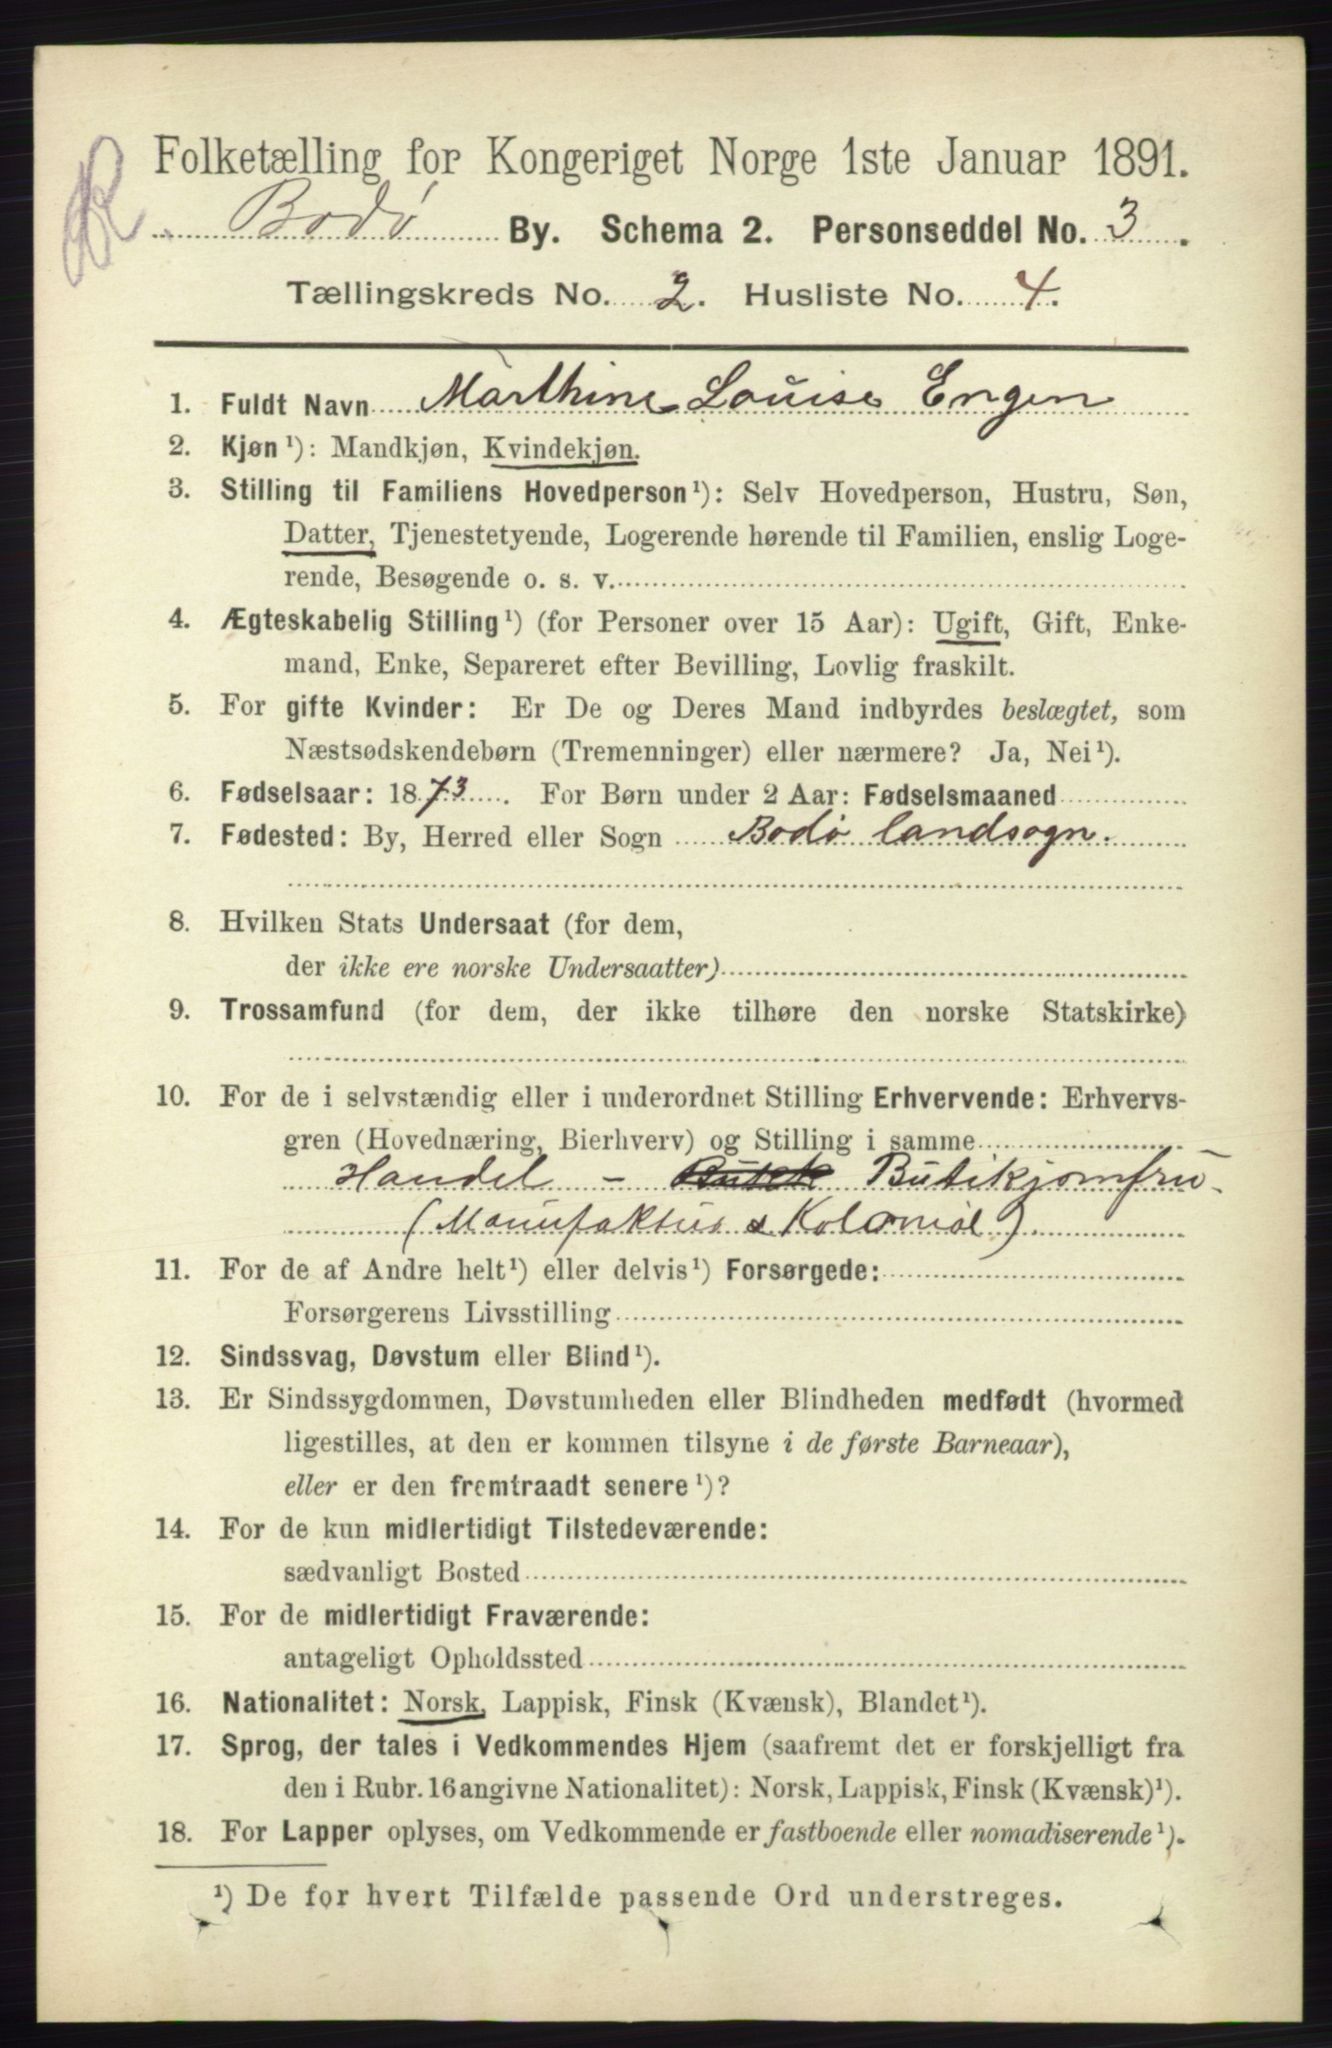 Folketælling for Kongeriget Norge 1ste Januar 1891.
Bodø By. Schema 2. Personseddel No. 3.
Tællingskreds No. 2. Husliste No. 4.
1. Fuldt Navn Marthine Louise Engen
2. Kjøn¹): Mandkjøn, Kvindekjøn.
3. Stilling til Familiens Hovedperson¹): Selv Hovedperson, Hustru, Søn,
Datter, Tjenestetyende, Logerende hørende til Familien, enslig Loge-
rende, Besøgende o. s. v.
4. Ægteskabelig Stilling¹) (for Personer over 15 Aar): Ugift, Gift, Enke-
mand, Enke, Separeret efter Bevilling, Lovlig fraskilt.
5. For gifte Kvinder: Er De og Deres Mand indbyrdes beslægtet, som
Næstsødskendebørn (Tremenninger) eller nærmere? Ja, Nei¹).
6. Fødselsaar: 1873. For Børn under 2 Aar: Fødselsmaaned
7. Fødested: By, Herred eller Sogn Bodø landsogn.
8. Hvilken Stats Undersaat (for dem,
der ikke ere norske Undersaatter)
9. Trossamfund (for dem, der ikke tilhøre den norske Statskirke)
10. For de i selvstændig eller i underordnet Stilling Erhvervende: Erhvervs-
gren (Hovednæring, Bierhverv) og Stilling i samme
Handel - Butik Butikjomfru.
(Manufaktur & Kolonial).
11. For de af Andre helt¹) eller delvis¹) Forsørgede:
Forsørgerens Livsstilling
12. Sindssvag, Døvstum eller Blind¹).
13. Er Sindssygdommen, Døvstumheden eller Blindheden medfødt (hvormed
ligestilles, at den er kommen tilsyne i de første Barneaar),
eller er den fremtraadt senere¹)?
14. For de kun midlertidigt Tilstedeværende:
sædvanligt Bosted
15. For de midlertidigt Fraværende:
antageligt Opholdssted
16. Nationalitet: Norsk, Lappisk, Finsk (Kvænsk), Blandet¹).
17. Sprog, der tales i Vedkommendes Hjem (saafremt det er forskjelligt fra
den i Rubr. 16 angivne Nationalitet): Norsk, Lappisk, Finsk (Kvænsk)¹).
18. For Lapper oplyses, om Vedkommende er fastboende eller nomadiserende¹).
¹) De for hvert Tilfælde passende Ord understreges.